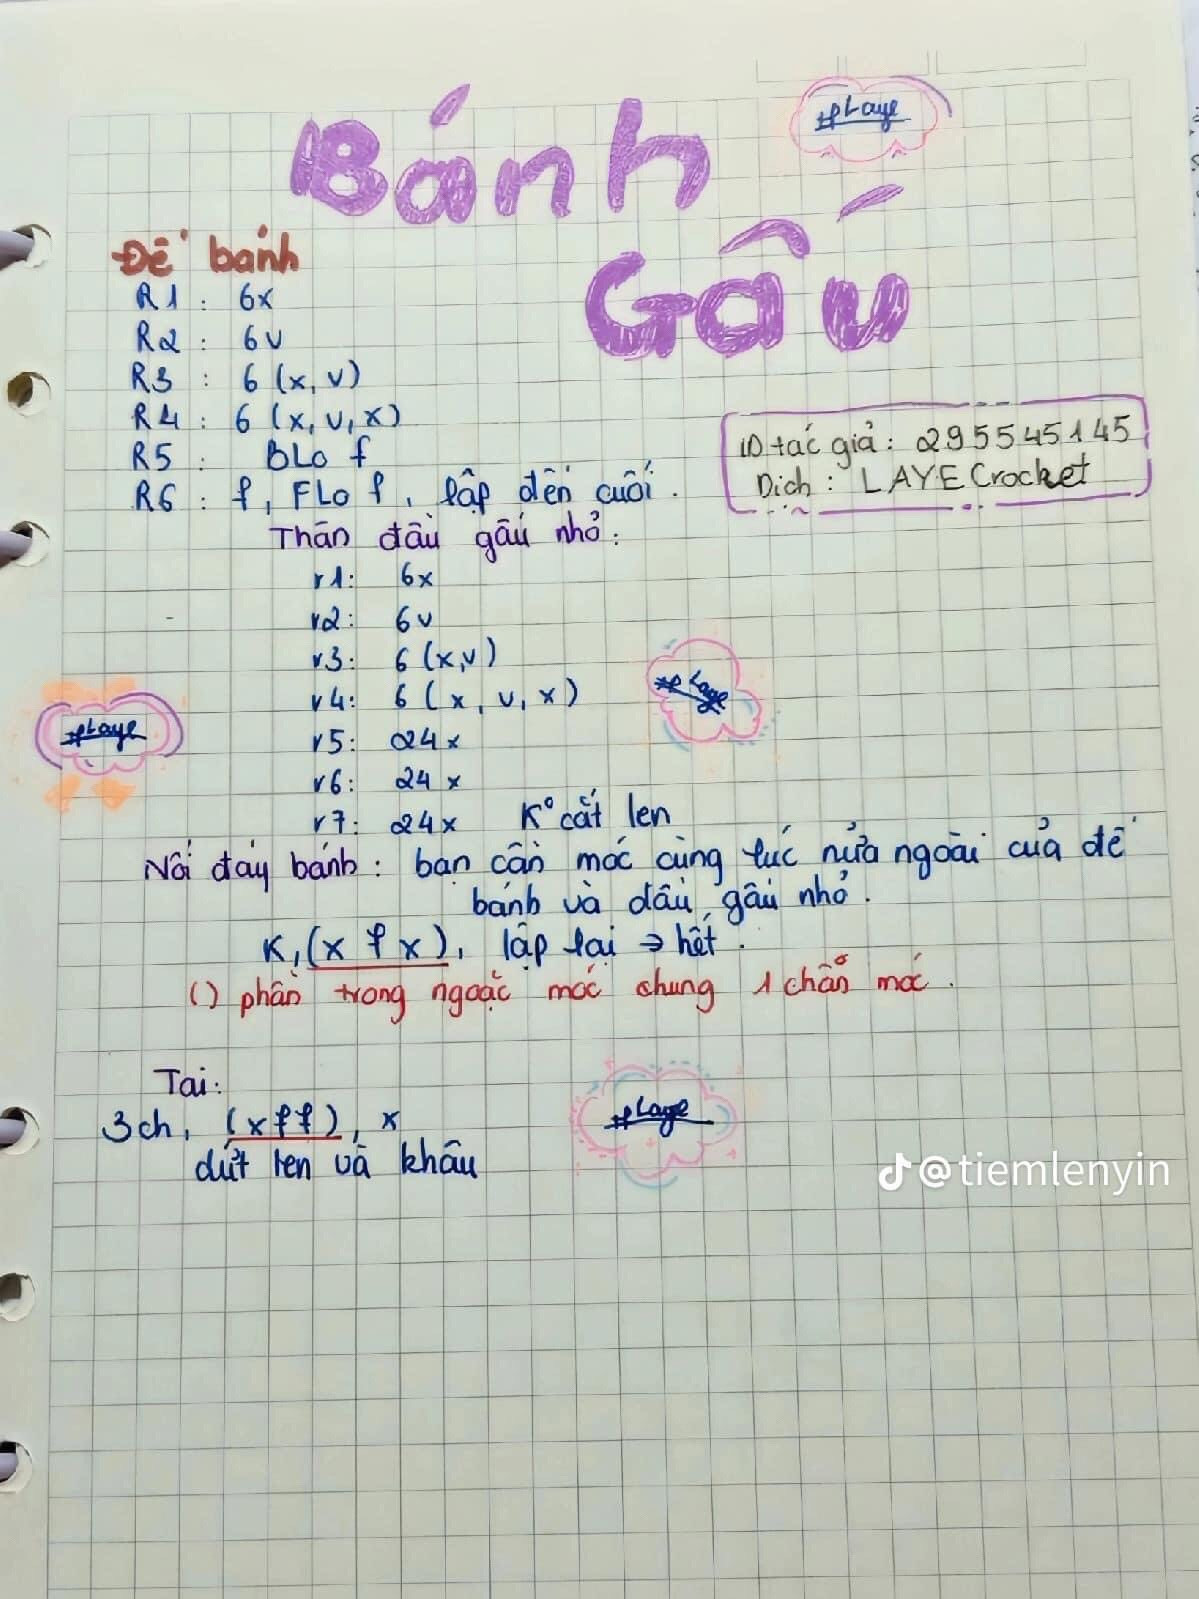 Bánh
Gấu
#Laye
Đế bánh
R1 : 6x
R2 : 6v
R3 : 6 (x, v)
R4 : 6 (x, v, x)
R5 : BLo f
R6 : f, FLo f, lặp đến cuối.
ID tác giả: 295545145
Dịch : LAYE Crocket
Thân đầu gấu nhỏ:
r1: 6x
r2: 6v
r3: 6 (x,v)
r4: 6 (x, v, x)
r5: 24x
r6: 24x
r7: 24x K° cắt len
#Laye
#Laye
Nối đáy bánh : bạn cần móc cùng lúc nửa ngoài của đế
bánh và đầu gấu nhỏ.
K, (x f x), lặp lại → hết.
() phần trong ngoặc móc chung 1 chân móc.
Tai:
3ch, (x f f), x
dứt len và khâu
#Laye
@tiemlenyin